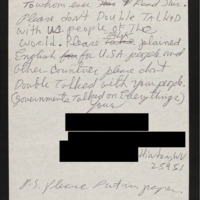 To whom ever Read This.
Please don't Double TALKED
with us people of The
World. Please plained
English for U.S.A people and
other Countries please don't
Double Talked with your people.
(Governments Talked on Everythings)
Yours
Hinton, WV
25951
P.S. Please Put in paper.